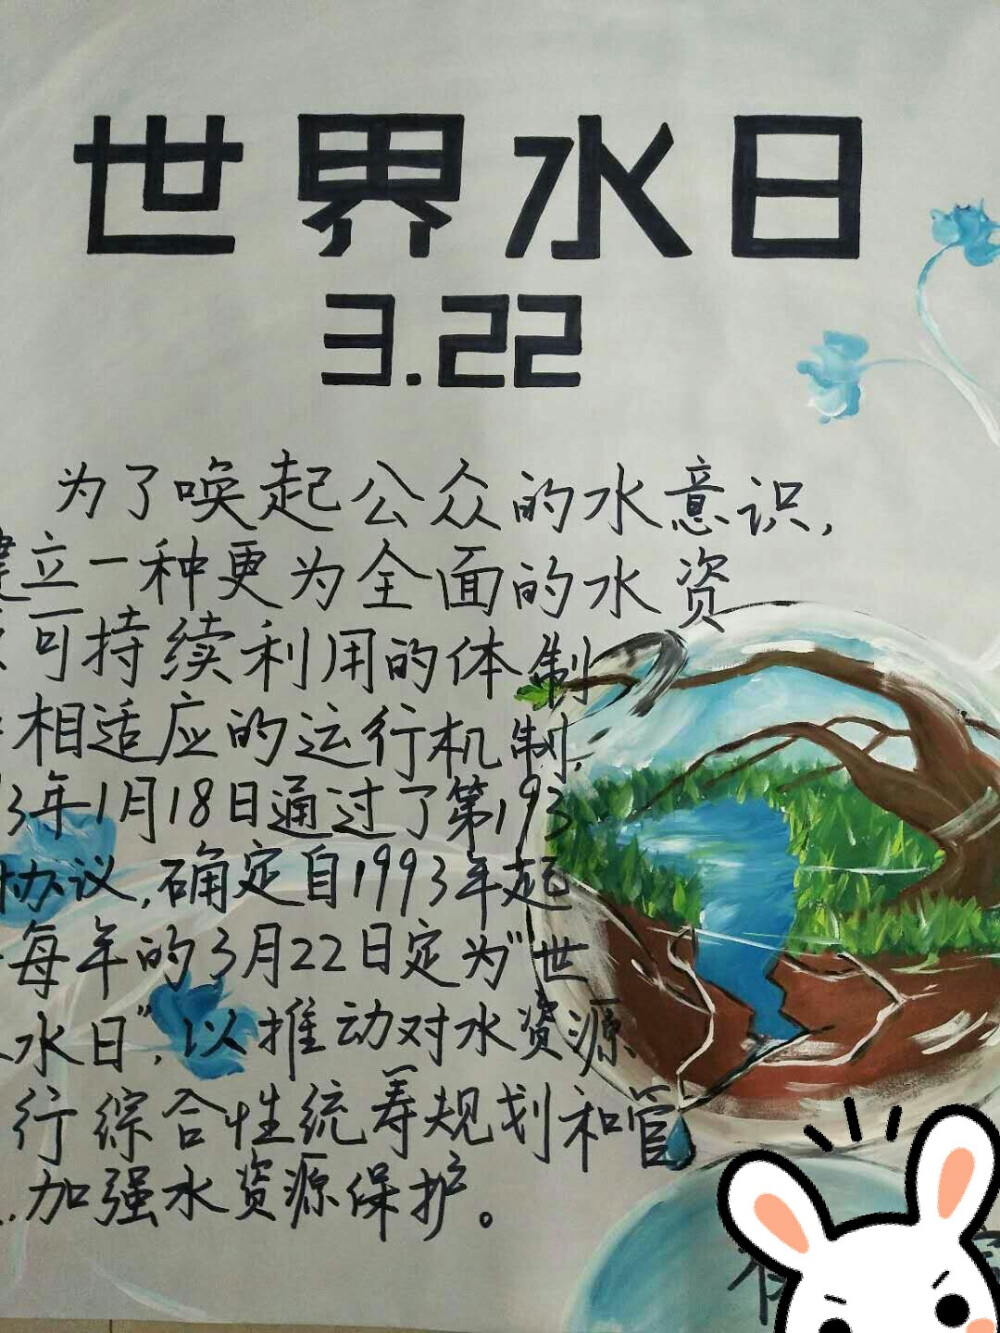 世界水日
3.22
为了唤起公众的水意识,
建立一种更为全面的水资
可持续利用的体制
相适应的运行机制,
3年1月18日通过了第193
协议,确定自1993年起
每年的3月22日定为"世
水日",以推动对水资源
行综合性统筹规划和管
加强水资源保护。